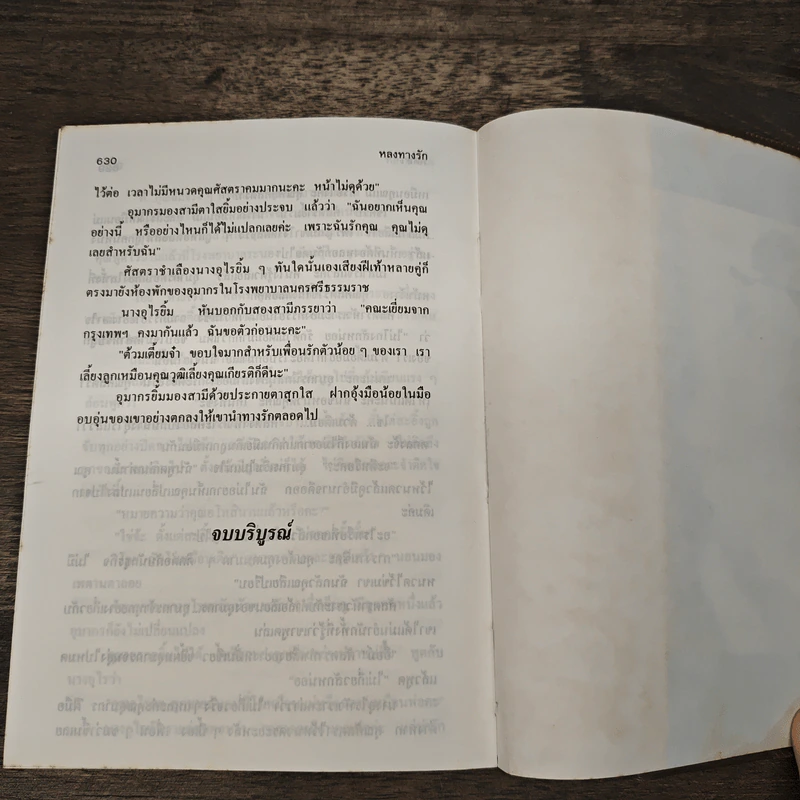 630
หลงทางรัก
ไว้ต่อ เวลาไม่มีหนวดคุณศัสตราคมมากนะคะ หน้าไม่ดุด้วย"
อุมากรมองสามีตาใสยิ้มอย่างประจบ แล้วว่า "ฉันอยากเห็นคุณ
อย่างนี้ หรืออย่างไหนก็ได้ไม่แปลกเลยค่ะ เพราะฉันรักคุณ คุณไม่ดุ
เลยสำหรับฉัน"
ศัสตราชำเลืองนางอุไรยิ้ม ๆ ทันใดนั้นเองเสียงฝีเท้าหลายคู่ก็
ตรงมายังห้องพักของอุมากรในโรงพยาบาลนครศรีธรรมราช
นางอุไรยิ้ม หันบอกกับสองสามีภรรยาว่า "คณะเยี่ยมจาก
กรุงเทพฯ คงมากันแล้ว ฉันขอตัวก่อนนะคะ"
"ต้วมเตี้ยมจ๋า ขอบใจมากสำหรับเพื่อนรักตัวน้อย ๆ ของเรา เรา
เลี้ยงลูกเหมือนคุณวุฒิเลี้ยงคุณเกียรติก็ดีนะ"
อุมากรยิ้มมองสามีด้วยประกายตาสุกใส ฝากอุ้งมือน้อยในมือ
อบอุ่นของเขาอย่างตกลงให้เขานำทางรักตลอดไป
จบบริบูรณ์